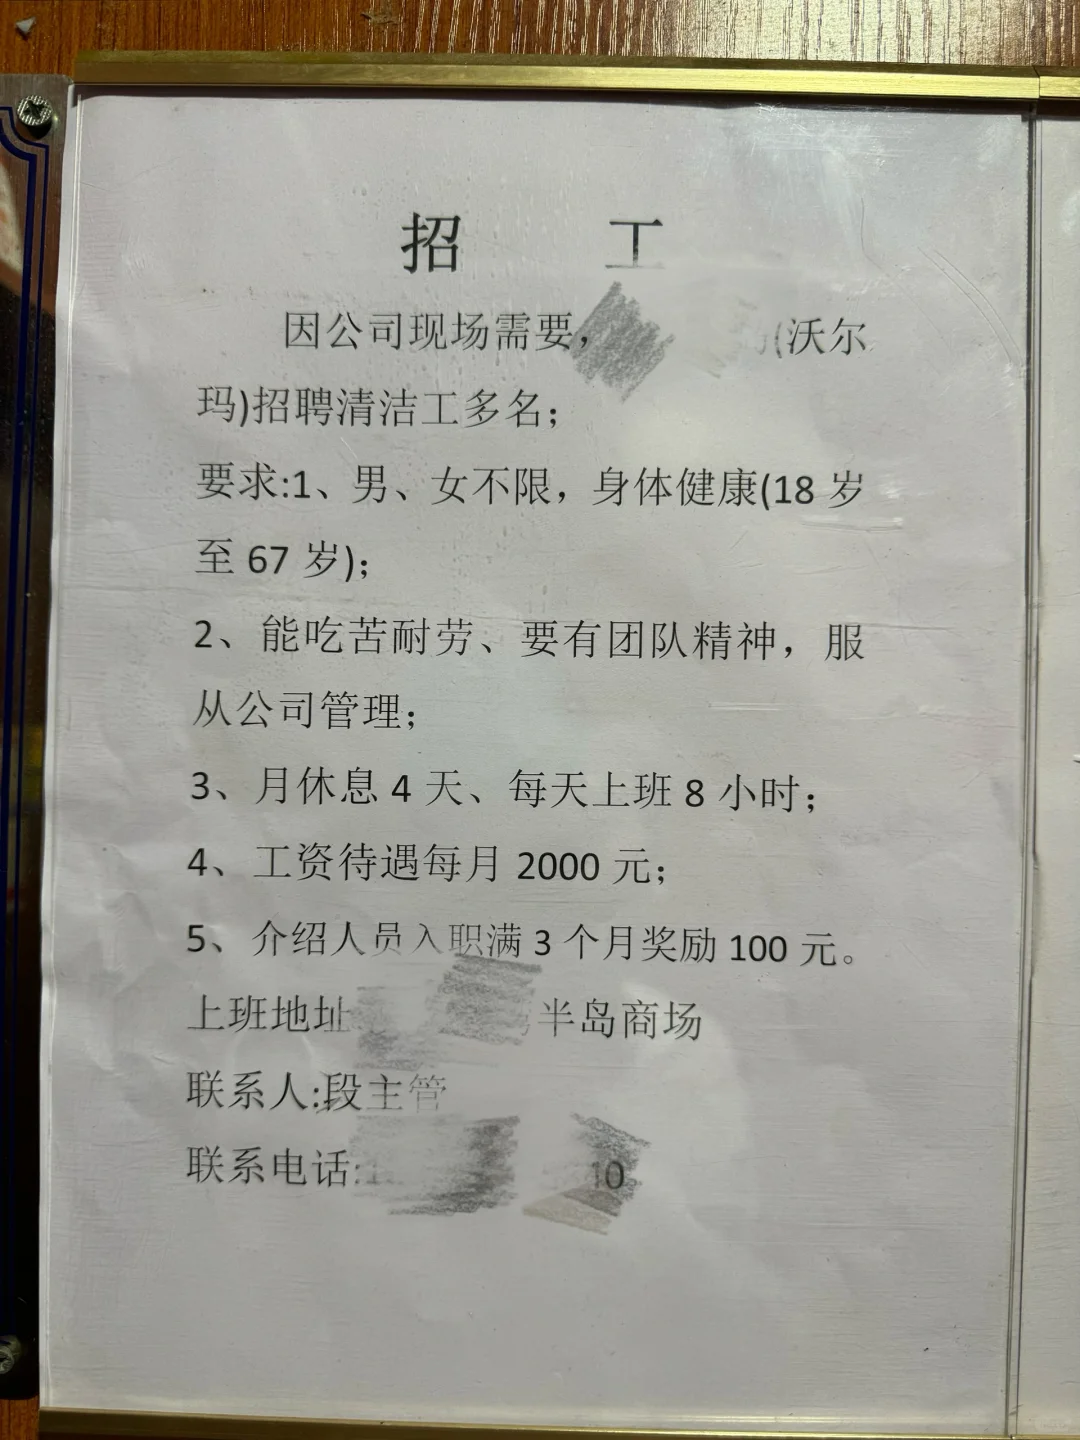 招 工
因公司现场需要，(沃尔
玛)招聘清洁工多名；
要求:1、男、女不限，身体健康(18 岁
至 67 岁)；
2、能吃苦耐劳、要有团队精神，服
从公司管理；
3、月休息 4 天、每天上班 8 小时；
4、工资待遇每月 2000 元；
5、介绍人员入职满 3 个月奖励 100 元。
上班地址 半岛商场
联系人:段主管
联系电话: 10